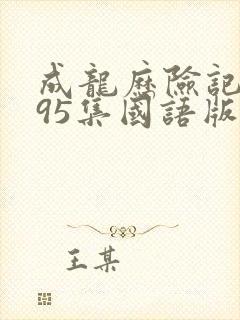 成龍歷險記
95集國語版
王某